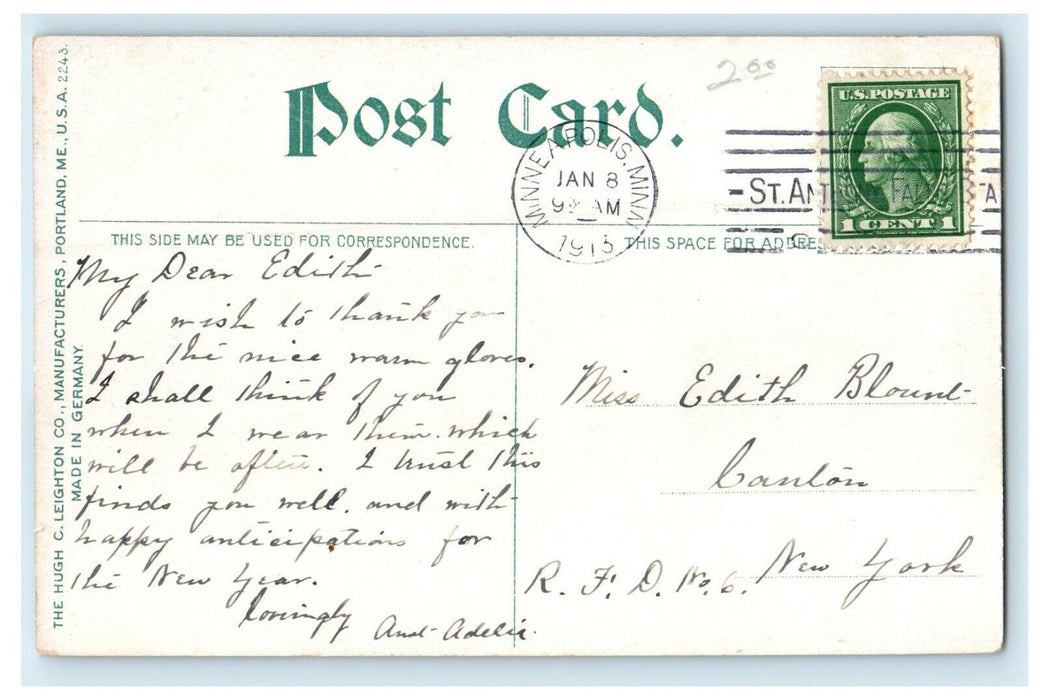 2.00
Post Card.
U.S. POSTAGE
1 CENT 1
MINNEAPOLIS. MINN.
JAN 8
9 AM
1913
ST. AN
FALLS
THIS SIDE MAY BE USED FOR CORRESPONDENCE.
THIS SPACE FOR ADDRE
THE HUGH C. LEIGHTON CO., MANUFACTURERS, PORTLAND, ME., U.S.A. 2243.
MADE IN GERMANY.
My Dear Edith
I wish to thank you
for the nice warm gloves.
I shall think of you
when I wear them. which
will be often. I trust this
finds you well. and with
happy anticipations for
the New Year.
Lovingly
Aunt Adelia.
Miss Edith Blount
Canton
New York
R. F. D. No. 6.